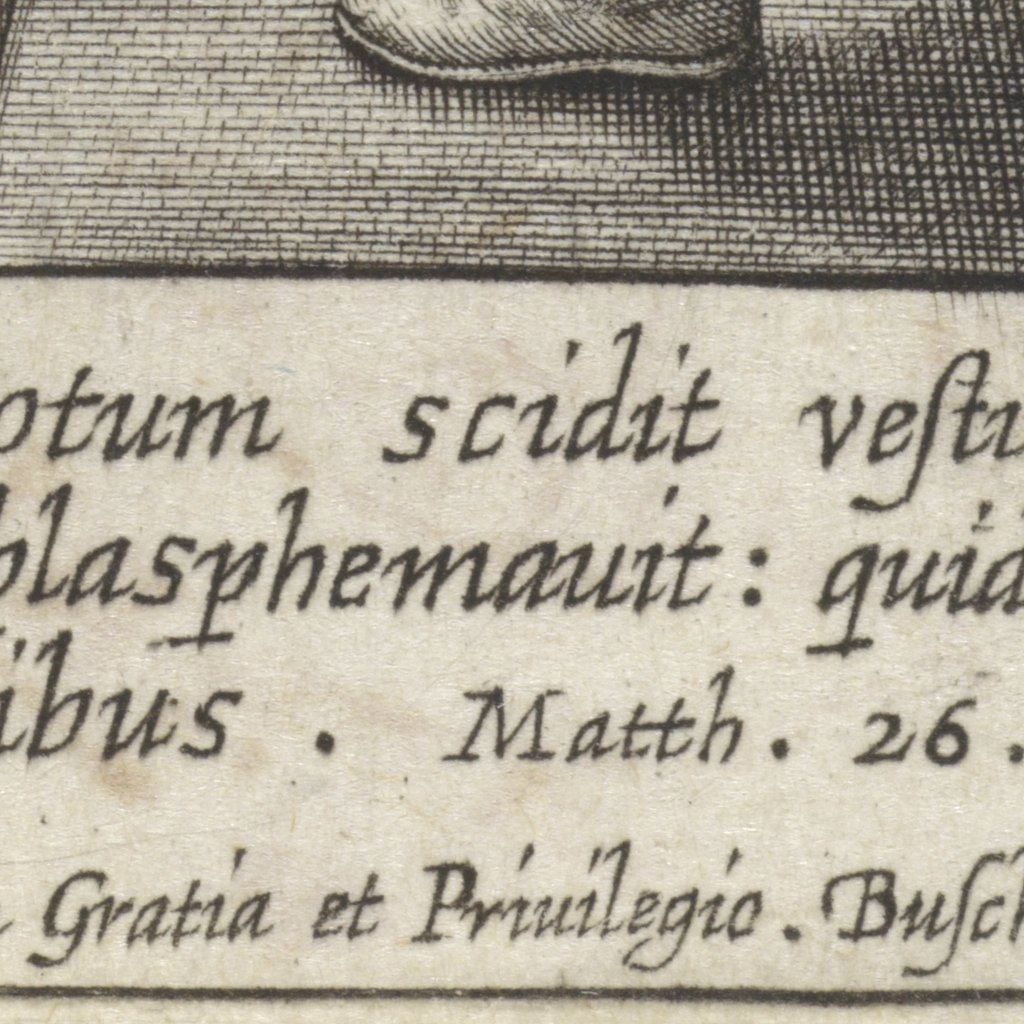 otum scidit veſti
blasphemauit: quid
ibus. Matth. 26.
Gratia et Priuilegio. Buſch